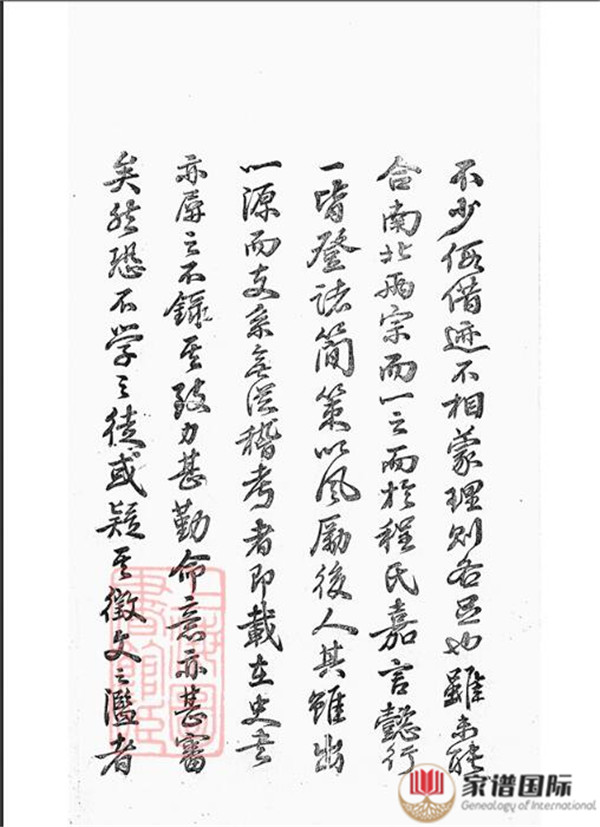 不少假借迹不相蒙理則各足也雖未能
合南北兩宗而一之而於程氏嘉言懿行
一皆登諸簡策以風勵後人其雖出
一源而支系無從稽考者即載在史書
亦屏之不錄其致力甚勤命意亦甚審
矣然恐不學之徒或疑其徵文之濫者
上海圖
書館藏
家谱国际
Genealogy of International